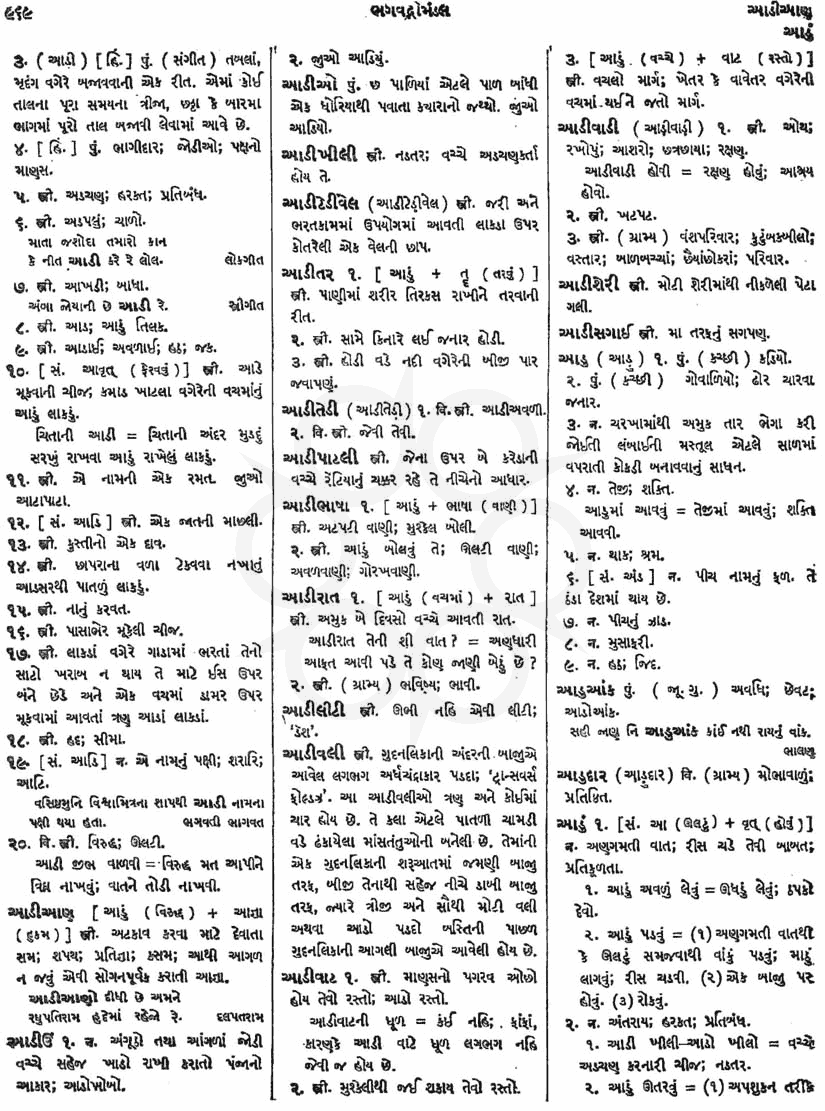 ૯૬૯
ભગવદ્ગોમંડલ
આડીઆણ
આડું
૩. (આડી) [હિં.] પું. (સંગીત) તબલાં,
મૃદંગ વગેરે બજાવવાની એક રીત. એમાં કોઈ
તાલના પૂરા સમયના ત્રીજા, છઠ્ઠા કે બારમા
ભાગમાં પૂરો તાલ બજાવી લેવામાં આવે છે.
૪. [હિં.] પું. ભાગીદાર; જોડીઓ; પક્ષનો
માણસ.
૫. સ્ત્રી. અડચણ; હરકત; પ્રતિબંધ.
૬. સ્ત્રી. અડપલું; ચાળો.
માતા જશોદા તમારો કાન
કે નીત આડી કરે રે લોલ. લોકગીત
૭. સ્ત્રી. આખડી; બાધા.
અંબા જોયાની છે આડી રે. સ્ત્રીગીત
૮. સ્ત્રી. આડ; આડું તિલક.
૯. સ્ત્રી. આડાઈ; અવળાઈ; હઠ; જક.
૧૦. [સં. આવૃત્ (ફેરવવું)] સ્ત્રી. આડે
મૂકવાની ચીજ; કમાડ ખાટલા વગેરેની વચમાંનું
આડું લાકડું.
ચિતાની આડી = ચિતાની અંદર મુડદું
સરખું રાખવા આડું રાખેલું લાકડું.
૧૧. સ્ત્રી. એ નામની એક રમત. જુઓ
આટાપાટા.
૧૨. [સં. આડિ] સ્ત્રી. એક જાતની માછલી.
૧૩. સ્ત્રી. કુસ્તીનો એક દાવ.
૧૪. સ્ત્રી. છાપરાના વળા ટેકવવા નખાતું
આડસરથી પાતળું લાકડું.
૧૫. સ્ત્રી. નાનું કરવત.
૧૬. સ્ત્રી. પાસાભેર મૂકેલી ચીજ.
૧૭. સ્ત્રી. લાકડાં વગેરે ગાડામાં ભરતાં તેનો
સાટો ખરાબ ન થાય તે માટે ઈસ ઉપર
બંને છેડે અને એક વચમાં ડામર ઉપર
મૂકવામાં આવતાં ત્રણ આડાં લાકડાં.
૧૮. સ્ત્રી. હદ; સીમા.
૧૯. [સં. આડિ] ન. એ નામનું પક્ષી; શરારિ;
આટિ.
વસિષ્ઠમુનિ વિશ્વામિત્રના શાપથી આડી નામના
પક્ષી થયા હતા. ભગવતી ભાગવત
૨૦. વિ. સ્ત્રી. વિરુદ્ધ; ઊલટી.
આડી જીભ વાળવી = વિરુદ્ધ મત આપીને
વિઘ્ન નાખવું; વાતને તોડી નાખવી.
આડીઆણ [આડું (વિરુદ્ધ) + આજ્ઞા
(હુકમ)] સ્ત્રી. અટકાવ કરવા માટે દેવાતા
સમ; શપથ; પ્રતિજ્ઞા; કસમ; આથી આગળ
ન જવું એવી સોગનપૂર્વક કરાતી આજ્ઞા.
આડીઆણો દીધી છે અમને
રઘુપતિરામ હૃદેમાં રહેજો રે. દલપતરામ
આડીઉં ૧. ન. અંગૂઠો તથા આંગળાં જોડી
વચ્ચે સહેજ ખાડો રાખી કરાતો પંજાનો
આકાર; આડોખોબો.
૨. જુઓ આડિયું.
આડીઓ પું. છ પાળિયાં એટલે પાળ બાંધી
એક ધોરિયાથી પવાતા ક્યારાનો જથ્થો. જુઓ
આડિયો.
આડીખીલી સ્ત્રી. નડતર; વચ્ચે અડચણકર્તા
હોય તે.
આડીટેડીવેલ (આડીટેડીવેલ) સ્ત્રી. જરી અને
ભરતકામમાં ઉપયોગમાં આવતી લાકડા ઉપર
કોતરેલી એક વેલની છાપ.
આડીતર ૧. [આડું + તૄ (તરવું)]
સ્ત્રી. પાણીમાં શરીર તિરકસ રાખીને તરવાની
રીત.
૨. સ્ત્રી. સામે કિનારે લઈ જનાર હોડી.
૩. સ્ત્રી. હોડી વડે નદી વગેરેની બીજી પાર
જવાપણું.
આડીતેડી (આડીતેડી) ૧. વિ. સ્ત્રી. આડીઅવળી.
૨. વિ. સ્ત્રી. જેવી તેવી.
આડીપાટલી સ્ત્રી. જેના ઉપર બે કરેડાની
વચ્ચે રેંટિયાનું ચક્કર રહે તે નીચેનો આધાર.
આડીભાષા ૧. [આડું + ભાષા (વાણી)]
સ્ત્રી. અટપટી વાણી; મુશ્કેલ બોલી.
૨. સ્ત્રી. આડું બોલવું તે; ઊલટી વાણી;
અવળવાણી; ગોરખવાણી.
આડીરાત ૧. [આડું (વચમાં) + રાત]
સ્ત્રી. અમુક બે દિવસો વચ્ચે આવતી રાત.
આડીરાત તેની શી વાત? = અણધારી
આફત આવી પડે તે કોણ જાણી બેઠું છે?
૨. સ્ત્રી. (ગ્રામ્ય) ભવિષ્ય; ભાવી.
આડીલીટી સ્ત્રી. ઊભી નહિ એવી લીટી;
'ડૅશ'.
આડીવલી સ્ત્રી. ગુદનલિકાની અંદરની બાજુએ
આવેલ લગભગ અર્ધચંદ્રાકાર પડદા; 'ટ્રાન્સવર્સ
ફોલ્ડઝ'. આ આડીવલીઓ ત્રણ અને કોઈમાં
ચાર હોય છે. તે કલા એટલે પાતળી ચામડી
વડે ઢંકાયેલા માંસતંતુઓની બનેલી છે. તેમાંની
એક ગુદનલિકાની શરૂઆતમાં જમણી બાજુ
તરફ, બીજી તેનાથી સહેજ નીચે ડાબી બાજુ
તરફ, જ્યારે ત્રીજી અને સૌથી મોટી વલી
અથવા આડો પડદો બસ્તિની પાછળ
ગુદનલિકાની આગલી બાજુએ આવેલી હોય છે.
આડીવાટ ૧. સ્ત્રી. માણસનો પગરવ ઓછો
હોય તેવો રસ્તો; આડો રસ્તો.
આડીવાટની ધૂળ = કંઈ નહિ; ફાંફાં,
કારણકે આડી વાટે ધૂળ લગભગ નહિ
જેવી જ હોય છે.
૨. સ્ત્રી. મુશ્કેલીથી જઈ શકાય તેવો રસ્તો.
૩. [આડું (વચ્ચે) + વાટ (રસ્તો)]
સ્ત્રી. વચલો માર્ગ; ખેતર કે વાવેતર વગેરેની
વચમાં થઈને જતો માર્ગ.
આડીવાડી (આડીવાડી) ૧. સ્ત્રી. ઓથ;
રખોપું; આશરો; છત્રછાયા; રક્ષણ.
આડીવાડી હોવી = રક્ષણ હોવું; આશ્રય
હોવો.
૨. સ્ત્રી. ખટપટ.
૩. સ્ત્રી. (ગ્રામ્ય) વંશપરિવાર; કુટુંબકબીલો;
વસ્તાર; બાળબચ્ચાં; છૈયાંછોકરાં; પરિવાર.
આડીશેરી સ્ત્રી. મોટી શેરીમાંથી નીકળેલી પેટા
ગલી.
આડીસગાઈ સ્ત્રી. મા તરફનું સગપણ.
આડુ (આડુ) ૧. પું. (કચ્છી) કડિયો.
૨. પું. (કચ્છી) ગોવાળિયો; ઢોર ચારવા
જનાર.
૩. ન. ચરખામાંથી અમુક તાર ભેગા કરી
જોઈતી લંબાઈની મસ્તૂલ એટલે સાળમાં
વપરાતી કોકડી બનાવવાનું સાધન.
૪. ન. તેજી; શક્તિ.
આડુમાં આવવું = તેજીમાં આવવું; શક્તિ
આવવી.
૫. ન. થાક; શ્રમ.
૬. [સં. અંડ] ન. પીચ નામનું ફળ. તે
ઠંડા દેશમાં થાય છે.
૭. ન. પીચનું ઝાડ.
૮. ન. મુસાફરી.
૯. ન. હઠ; જિદ.
આડુઆંક પું. (જૂ. ગુ.) અવધિ; છેવટ;
આડોઆંક.
સહી જાણ નિ આડુઆંક કાંઈ નથી રાયનું વાંક.
ભાલણ
આડુદાર (આડુદાર) વિ. (ગ્રામ્ય) મોભાવાળું;
પ્રતિષ્ઠિત.
આડું ૧. [સં. આ (ઊલટું) + વૃત્ (હોવું)]
ન. અણગમતી વાત; રીસ ચડે તેવી બાબત;
પ્રતિકૂળતા.
૧. આડું અવળું લેવું = ઊધડું લેવું; ઠપકો
દેવો.
૨. આડું પડવું = (૧) અણગમતી વાતથી
કે ઊલટું સમજવાથી વાંકું પડવું; માઠું
લાગવું; રીસ ચડવી. (૨) એક બાજુ પર
હોવું. (૩) રોકવું.
૨. ન. અંતરાય; હરકત; પ્રતિબંધ.
૧. આડી ખીલી–આડો ખીલો = વચ્ચે
અડચણ કરનારી ચીજ; નડતર.
૨. આડું ઊતરવું = (૧) અપશુકન તરીકે